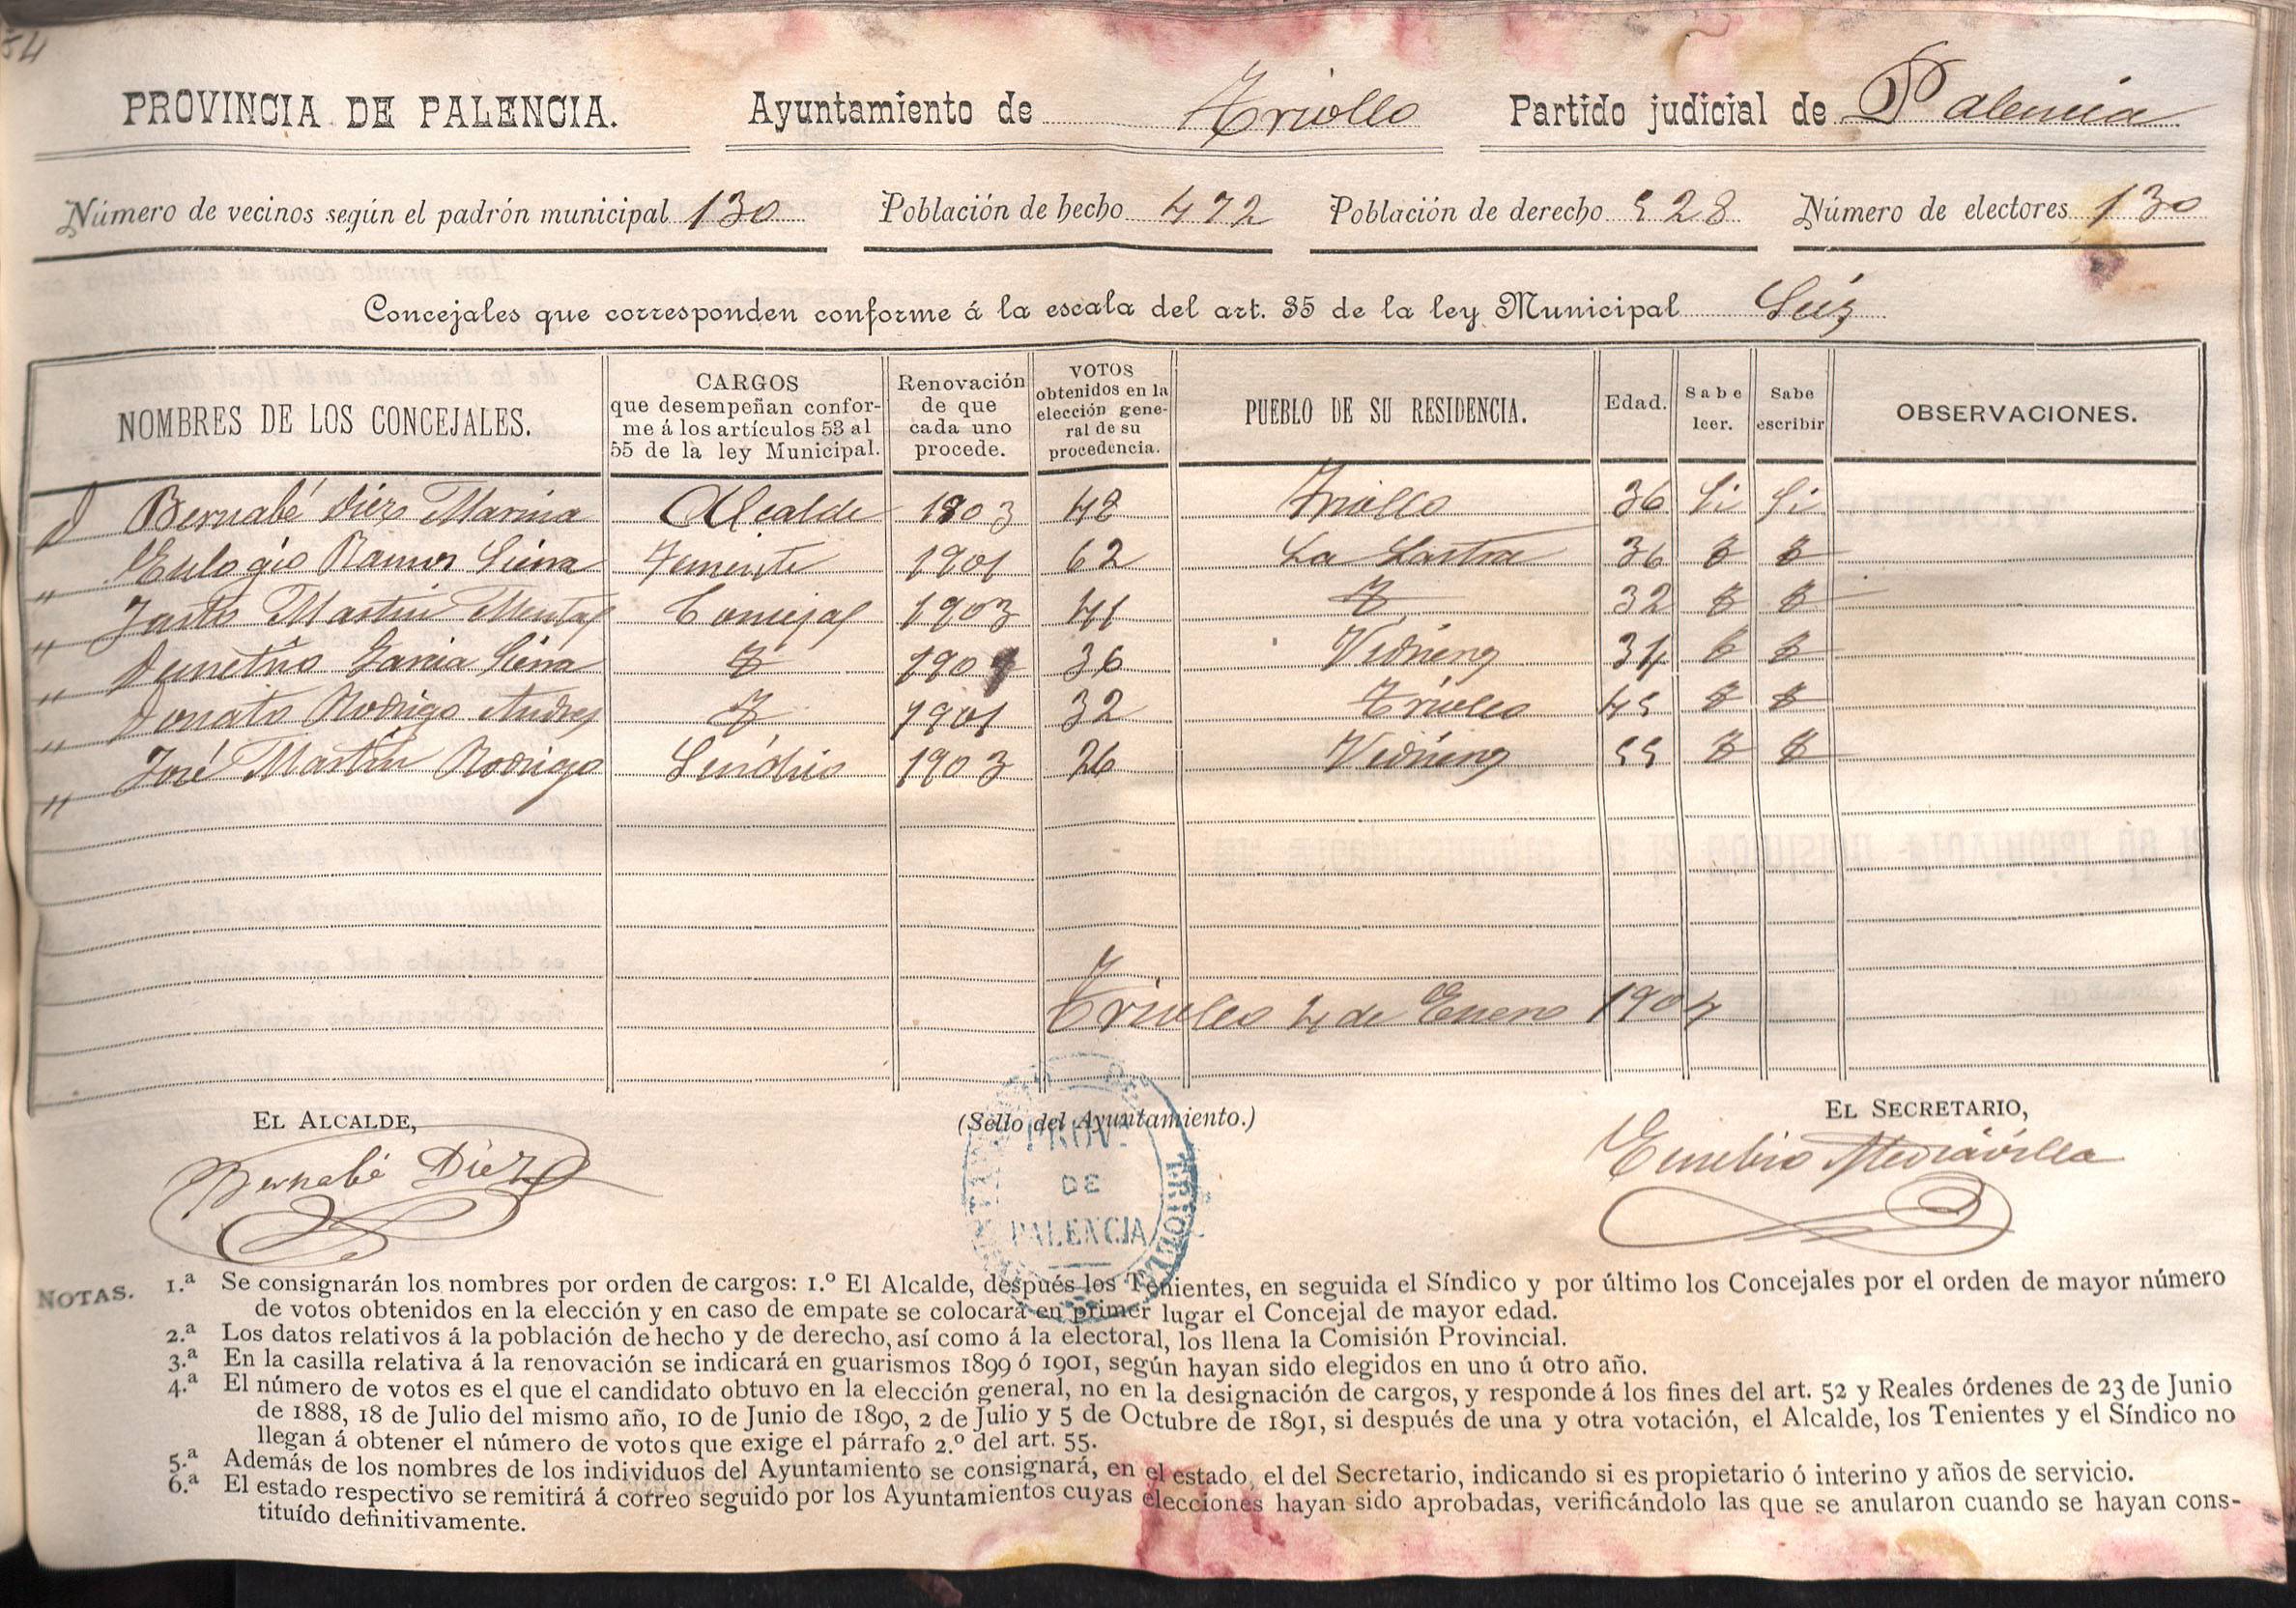 54
PROVINCIA DE PALENCIA. Ayuntamiento de Triollo Partido judicial de Palencia
Número de vecinos según el padrón municipal 130 Población de hecho 472 Población de derecho 528 Número de electores 130
Concejales que corresponden conforme á la escala del art. 35 de la ley Municipal Seis
NOMBRES DE LOS CONCEJALES. CARGOS que desempeñan conforme á los artículos 53 al 55 de la ley Municipal. Renovación de que cada uno procede. VOTOS obtenidos en la elección general de su procedencia. PUEBLO DE SU RESIDENCIA. Edad. Sabe leer. Sabe escribir OBSERVACIONES.
D Bernabé Diez Marina Alcalde 1903 42 Triollo 36 Si Si
" Eulogio Ramos Sierra Teniente 1901 62 La Lastra 36
" Justo Martin Concejal 1903 41 32
" Demetrio Garcia Sierra 190 36 Vidrieros 34
" Donato Rodrigo Andres 1901 32 Triollo 45
" José Martin Rodrigo Sindico 1903 26 Vidrieros 55
Triollo 4 de Enero 1904
EL ALCALDE, (Sello del Ayuntamiento.) EL SECRETARIO,
Bernabé Diez Eusebio Mediavilla
PROV.ª
DE
PALENCIA
TRIOLLO
NOTAS. 1.ª Se consignarán los nombres por orden de cargos: 1.º El Alcalde, después los Tenientes, en seguida el Síndico y por último los Concejales por el orden de mayor número
de votos obtenidos en la elección y en caso de empate se colocará en primer lugar el Concejal de mayor edad.
2.ª Los datos relativos á la población de hecho y de derecho, así como á la electoral, los llena la Comisión Provincial.
3.ª En la casilla relativa á la renovación se indicará en guarismos 1899 ó 1901, según hayan sido elegidos en uno ú otro año.
4.ª El número de votos es el que el candidato obtuvo en la elección general, no en la designación de cargos, y responde á los fines del art. 52 y Reales órdenes de 23 de Junio
de 1888, 18 de Julio del mismo año, 10 de Junio de 1890, 2 de Julio y 5 de Octubre de 1891, si después de una y otra votación, el Alcalde, los Tenientes y el Síndico no
llegan á obtener el número de votos que exige el párrafo 2.º del art. 55.
5.ª Además de los nombres de los individuos del Ayuntamiento se consignará, en el estado, el del Secretario, indicando si es propietario ó interino y años de servicio.
6.ª El estado respectivo se remitirá á correo seguido por los Ayuntamientos cuyas elecciones hayan sido aprobadas, verificándolo las que se anularon cuando se hayan cons-
tituído definitivamente.